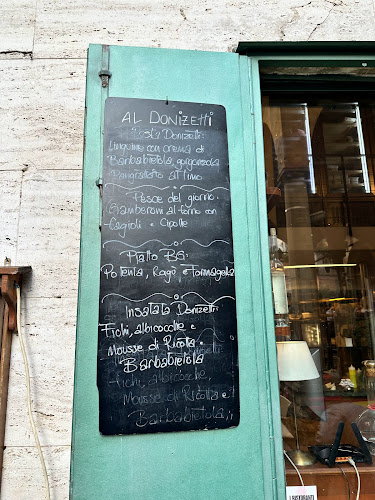 AL DONIZETTI
Donizetti:
Linguine con crema di
Barbabietola, gorgonzola
al timo
Pesce del giorno
Gamberoni al forno con
Fagioli e Cipolle
Piatto BG:
Polenta, Ragù e formagella
Insalata Donizetti:
Fichi, albicocche e
Mousse di Ricotta e
Barbabietola
Fichi, albicocche,
Mousse di Ricotta e
Barbabietola
I RISTORANTI